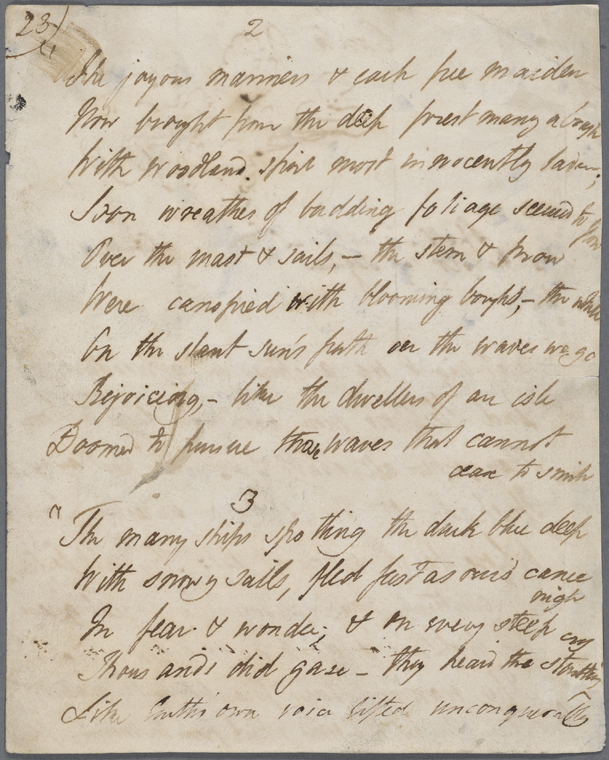 23)
2
The joyous mariners & each free maiden
Now brought from the deep forest many a bough
With woodland spoil most innocently laden;
Soon wreathes of budding foliage seemed to flow
Over the mast & sails,— the stern & prow
Were canopied with blooming boughs,— the while
On the slant sun's path oer the waves we go
Rejoicing,— like the dwellers of an isle
Doomed to pursue those waves that cannot
cease to smile
3
The many ships spotting the dark blue deep
With snowy sails, fled fast as our's came
nigh
In fear & wonder; & on every steep
Thousands did gaze — they heard the startling
cry
Like Earth's own voice lifted unconquerably